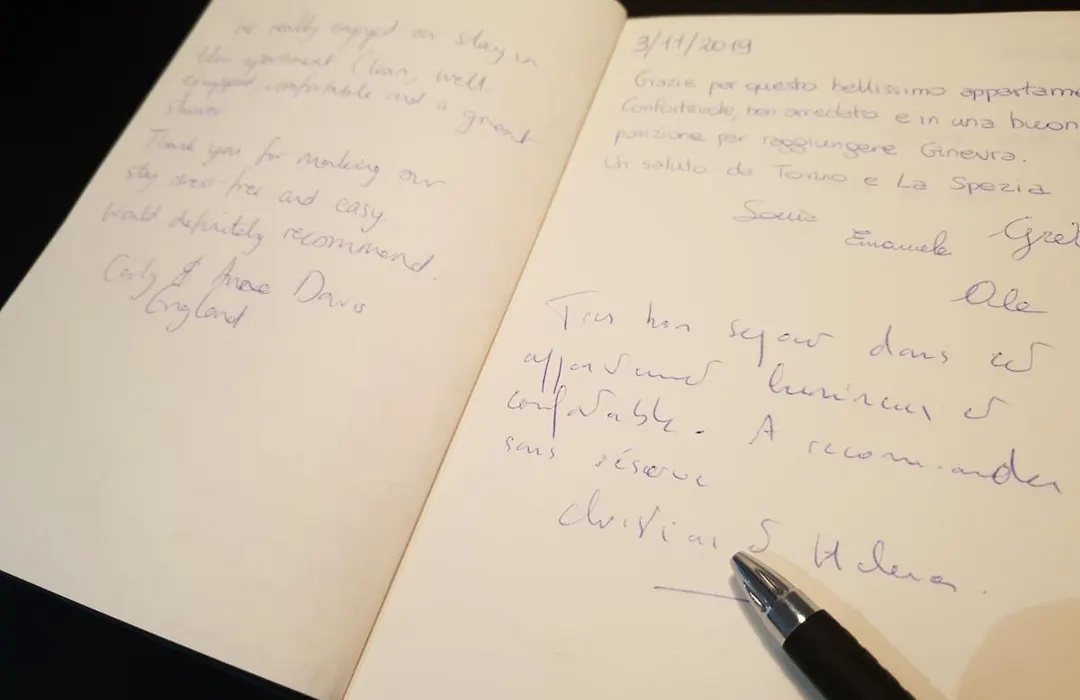 We really enjoyed our stay in
apartment Clean, well
equipped comfortable and a great
shower
Thank you for making our
stay stress free and easy
Would definitely recommend.
Carly & Davis
England
3/11/2019
Grazie per questo bellissimo appartame
Confortevole, ben arredato e in una buon
posizione per raggiungere Ginevra.
Un saluto da Torino e La Spezia
Sonia
Emanuele Gret
Ale
Tres bon sejour dans cet
appartement lumineux et
confortable. A recommander
sans réserve
Christian & Helena.